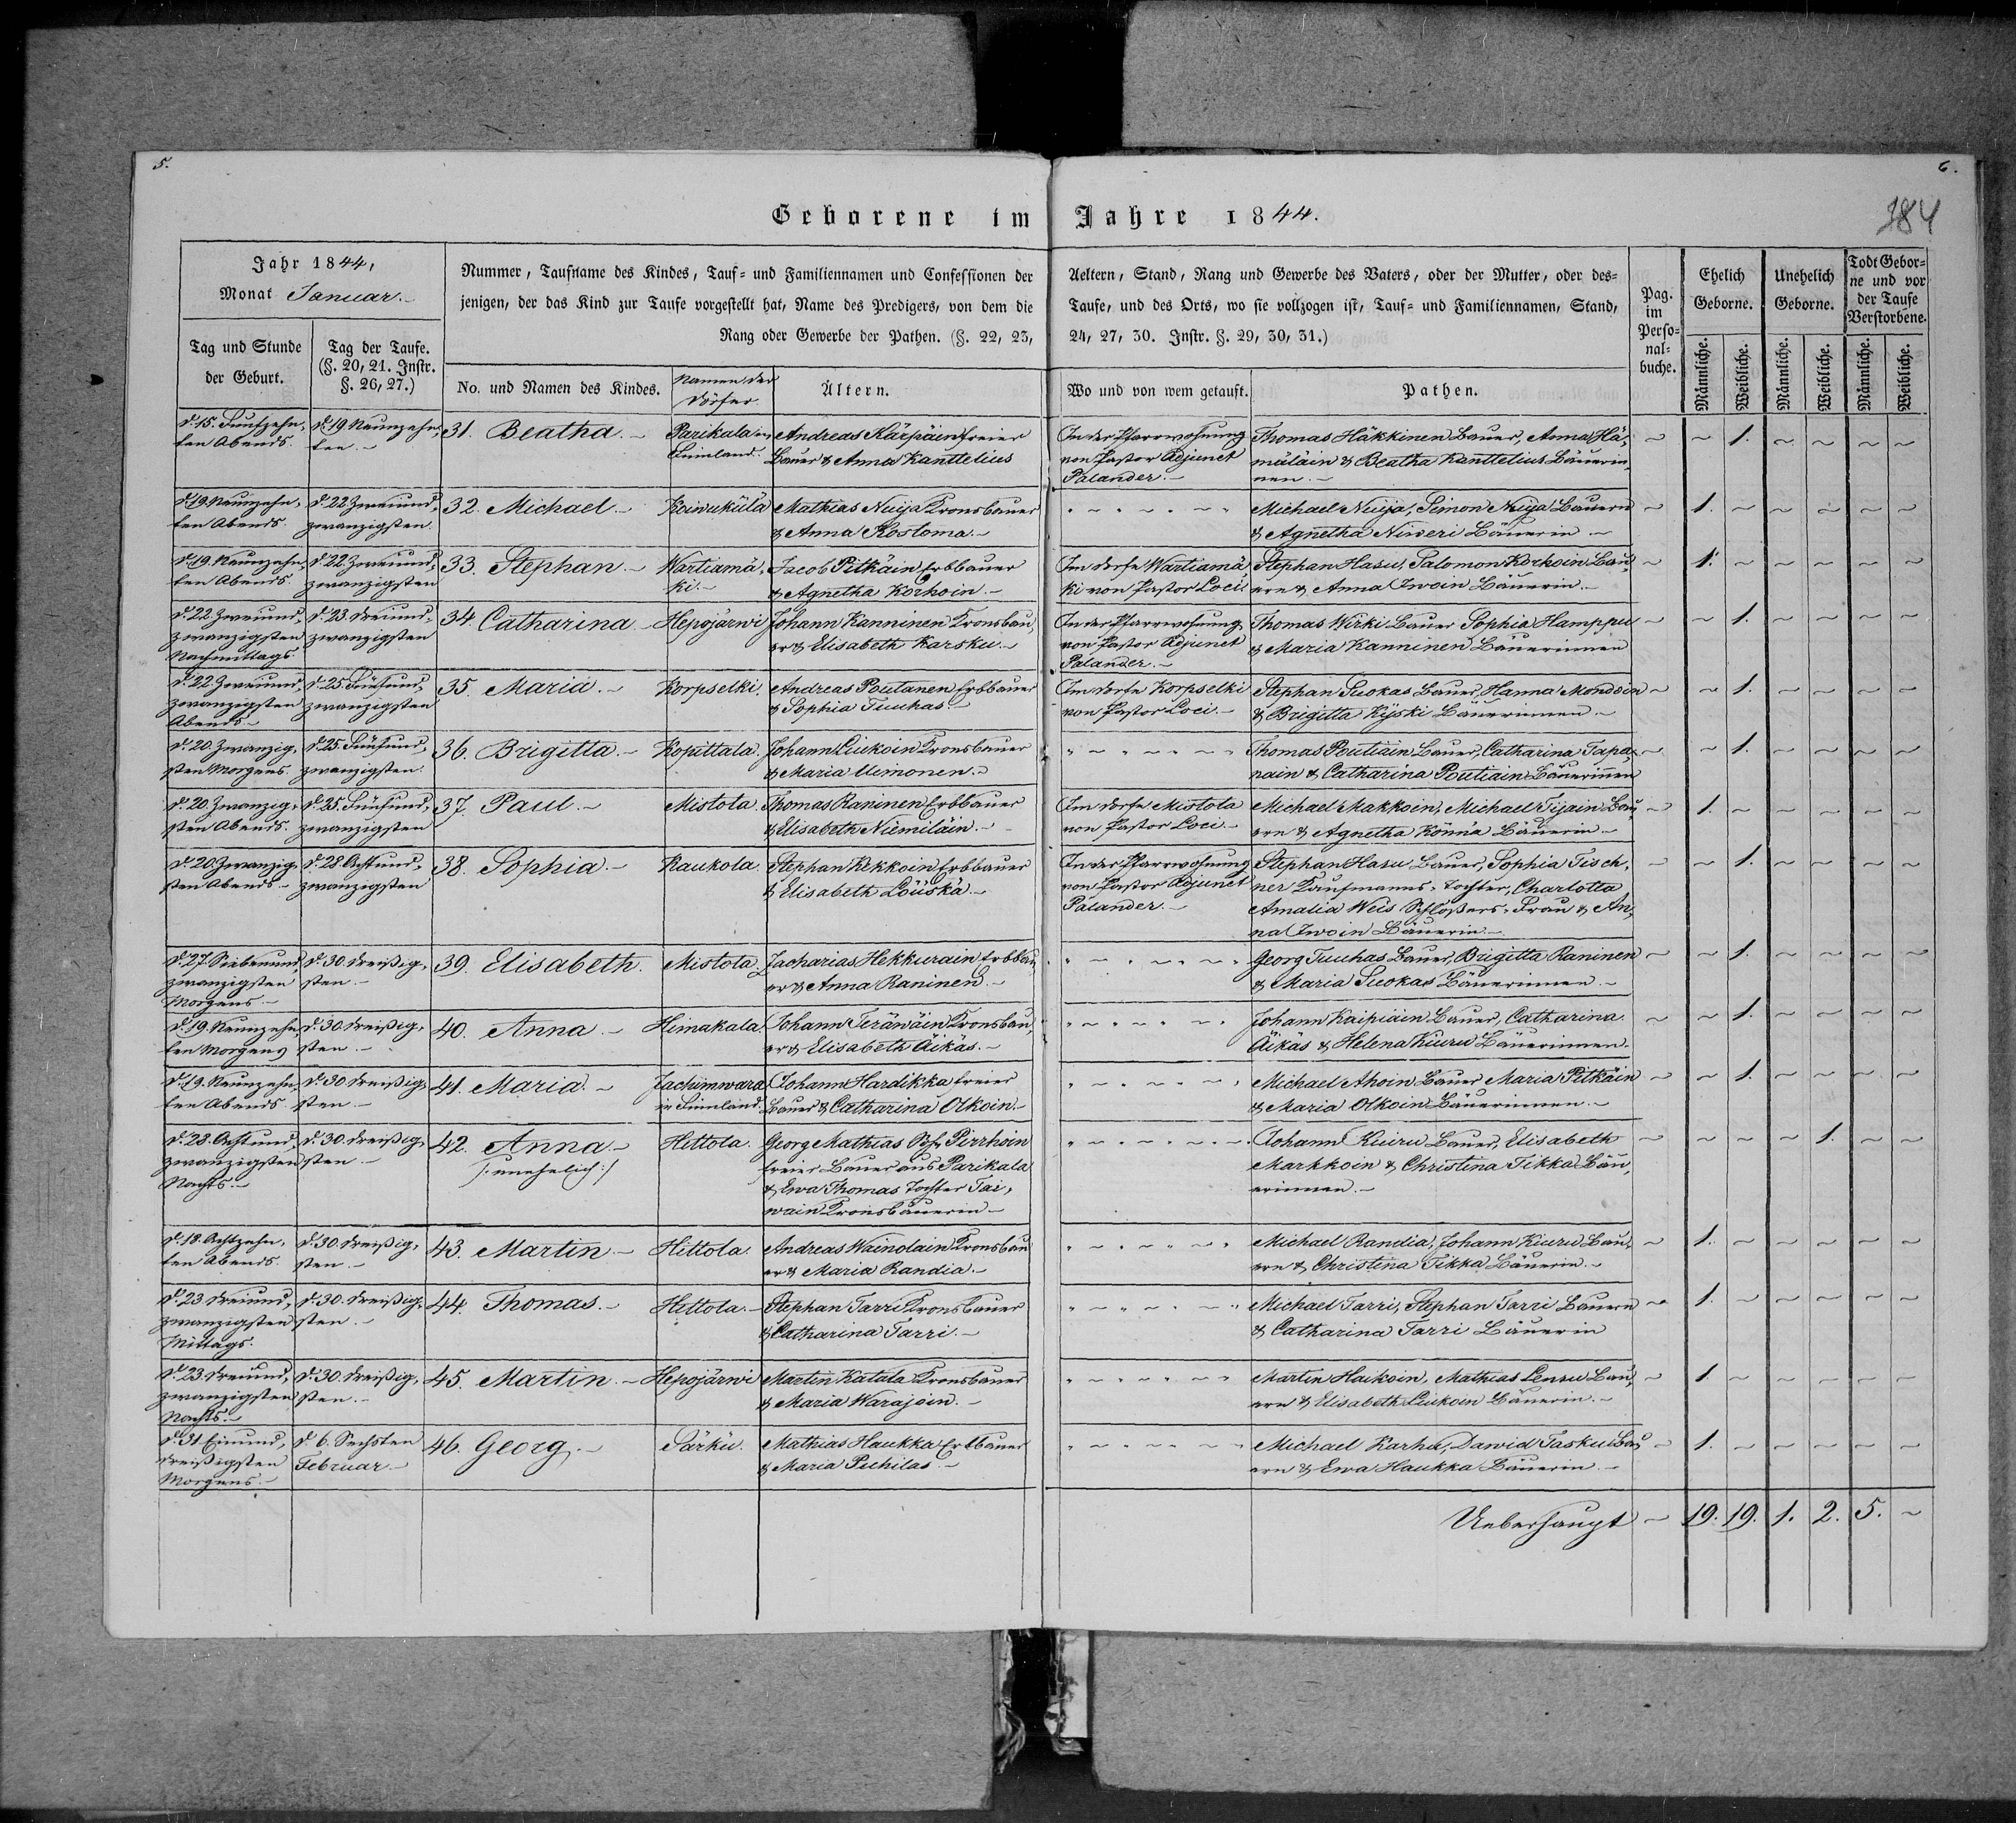 5.
6.
184
Geborene im Jahre 1844.
Jahr 1844,
Monat Januar.
Nummer, Taufname des Kindes, Tauf- und Familiennamen und Confessionen der
jenigen, der das Kind zur Taufe vorgestellt hat, Name des Predigers, von dem die
Rang oder Gewerbe der Pathen. (§. 22, 23,
Aeltern, Stand, Rang und Gewerbe des Vaters, oder der Mutter, oder des-
Taufe, und des Orts, wo sie vollzogen ist, Tauf- und Familiennamen, Stand,
24, 27, 30. Instr. §. 29, 30, 31.)
Pag.
im
Perso-
nal-
buche.
Ehelich
Geborne.
Unehelich
Geborne.
Todt Gebor-
ne und vor
der Taufe
Verstorbene.
Tag und Stunde
der Geburt.
Tag der Taufe.
(§. 20, 21. Instr.
§. 26, 27.)
No. und Namen des Kindes.
Namen der
Dörfer.
Ältern.
Wo und von wem getauft.
Pathen.
Männliche.
Weibliche.
Männliche.
Weibliche.
Männliche.
Weibliche.
d. 15. Funfzehn,
ten Abends.
d. 19. Neunzehn,
ten.
31. Beatha.
Parikala in
Finnland.
Andreas Kärpäin freier
Bauer & Anna Kanttelius
In der Pfarrwohnung
von Pastor Adjunct
Palander.
Thomas Häkkinen Bauer, Anna Hä,
mäläin & Beatha Kanttelius Bäuerin,
nen.
1.
d. 19. Neunzehn,
ten Abends.
d. 22. Zweiund,
zwanzigsten.
32. Michael.
Koiwuküla
Mathias Nuija Kronsbauer
& Anna Kostoma.
Michael Nuija, Simon Nuija Bauern
& Agnetha Niweri Bäuerin
1.
d. 19. Neunzehn,
ten Abends.
d. 22. Zweiund,
zwanzigsten
33. Stephan.
Wartiamä,
ki.
Jacob Pitkäin Erbbauer
& Agnetha Korhoin.
Im Dorfe Wartiamä
ki von Pastor Loci.
Stephan Hasu, Salomon Korhoin Bau,
ern & Anna Iwoin Bäuerin.
1.
d. 22. Zweiund,
zwanzigsten
Nachmittags.
d. 23. Dreiund,
zwanzigsten
34. Catharina
Hepojärwi
Johann Kanninen Kronsbau,
er & Elisabeth Karsku.
In der Pfarrwohnung
von Pastor Adjunct
Palander.
Thomas Wirki Bauer Sophia Hamppu
& Maria Kanninen Bäuerinnen
1.
d. 22. Zweiund,
zwanzigsten
Abends
d. 25. Fünfund,
zwanzigsten
35. Maria.
Korpselki.
Andreas Poutanen Erbbauer
& Sophia Tuuhas.
Im Dorfe Korpselki
von Pastor Loci.
Stephan Suokas Bauer, Hanna Mondoin
& Brigitta Kijski Bäuerinnen.
1.
d. 20. Zwanzig,
sten Morgens.
d. 25. Fünfund,
zwanzigsten.
36. Brigitta.
Kopittala.
Johann Liukoin Kronsbauer
& Maria Uimonen.
Thomas Poutiain Bauer, Catharina Tapa,
nain & Catharina Poutiain Bäuerinnen
1.
d. 20. Zwanzig,
sten Abends.
d. 25. Fünfund,
zwanzigsten
37. Paul.
Mistola.
Thomas Raninen Erbbauer
& Elisabeth Niemiläin.
Im Dorfe Mistola
von Pastor Loci.
Michael Makkoin, Michael Tijain Bau,
ern & Agnetha Könnä Bäuerin
1.
d. 20. Zwanzig,
sten Abends.
d. 28. Achtund,
zwanzigsten
38. Sophia.
Raukola.
Stephan Kekkoin Erbbauer
& Elisabeth Löüskä.
In der Pfarrwohnung
von Pastor Adjunct
Palander.
Stephan Hasu Bauer, Sophia Tisch,
ner Kaufmanns-Tochter, Charlotta
Amalia Weis Schlossers-Frau & An,
na Iwoin Bäuerin.
1.
d. 27. Siebenund,
zwanzigsten
Morgens.
d. 30. Dreißig,
sten.
39. Elisabeth.
Mistola
Zacharias Hekkurain Erbbau,
er & Anna Raninen.
Georg Tuuhas Bauer, Brigitta Raninen
& Maria Suokas Bäuerinnen.
1.
d. 19. Neunzehn,
ten Morgens
d. 30. Dreißig,
sten.
40. Anna
Himakala
Johann Teräwäin Kronsbau,
er & Elisabeth Äikäs.
Johann Kaipiain Bauer, Catharina
Äikäs & Helena Kiuru Bäuerinnen.
1.
d. 19. Neunzehn,
ten Abends
d. 30. Dreißig,
sten.
41. Maria.
Jachimwara
in Finnland.
Johann Hardikka freier
Bauer & Catharina Olkoin.
Michael Ahoin Bauer Maria Pitkäin
& Maria Olkoin Bäuerinnen.
1.
d. 28. Achtund,
zwanzigsten
Nachts.
d. 30. Dreißig,
sten.
42. Anna.
/: unehelich :/
Hittola.
Georg Mathias Sohn Pirrhoin
freier Bauer aus Parikala
& Ewa Thomas Tochter Tai,
wain Kronsbäuerin
Johann Kiuru Bauer, Elisabeth
Markkoin & Christina Tikka Bäu,
erinnen.
1.
d. 18. Achtzehn,
ten Abends.
d. 30. Dreißig,
sten.
43. Martin
Hittola.
Andreas Wainolain Kronsbau
er & Maria Randia.
Michael Randia, Johann Kiuru Bau,
ern & Christina Tikka Bäuerin.
1.
d. 23. Dreiund,
zwanzigsten
Mittags.
d. 30. Dreißig,
sten.
44. Thomas.
Hittola.
Stephan Tarri Kronsbauer
& Catharina Tarri.
Michael Tarri, Stephan Tarri Bauern
& Catharina Tarri Bäuerin
1.
d. 23. Dreiund,
zwanzigsten
Nachts.
d. 30. Dreißig,
sten.
45. Martin.
Hepojärwi
Martin Katala Kronsbauer
& Maria Warajoin.
Martin Haikoin, Mathias Lensu Bau,
ern & Elisabeth Liukoin Bäuerin.
1.
d. 31. Einund,
dreißigsten
Morgens.
d. 6. Sechsten
Februar.
46. Georg.
Särkü.
Mathias Haukka Erbbauer
& Maria Puhilas.
Michael Karhu, Dawid Tasku Bau
ern & Ewa Haukka Bäuerin.
1.
Ueberhaupt 19. 19. 1. 2. 5.